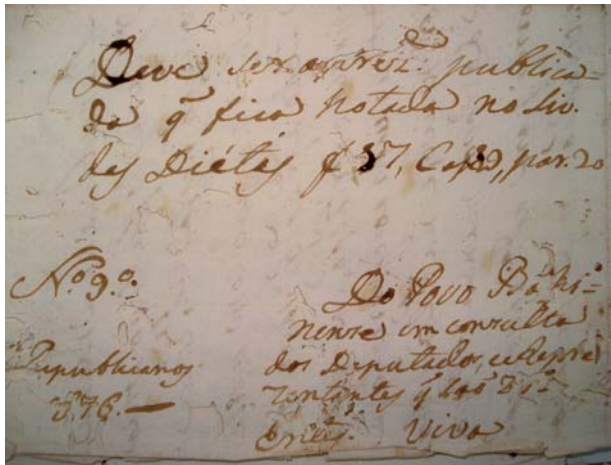 Deve ser aprez. publica=
da q̃ fica notada no Liv.
des Diétes f 37, Cap. par. 20
Nº 9.º
Republicanos
576. —
Do Povo Bahi=
nense em consulta
dos Deputados, e Repre
zentantes q̃
Viva